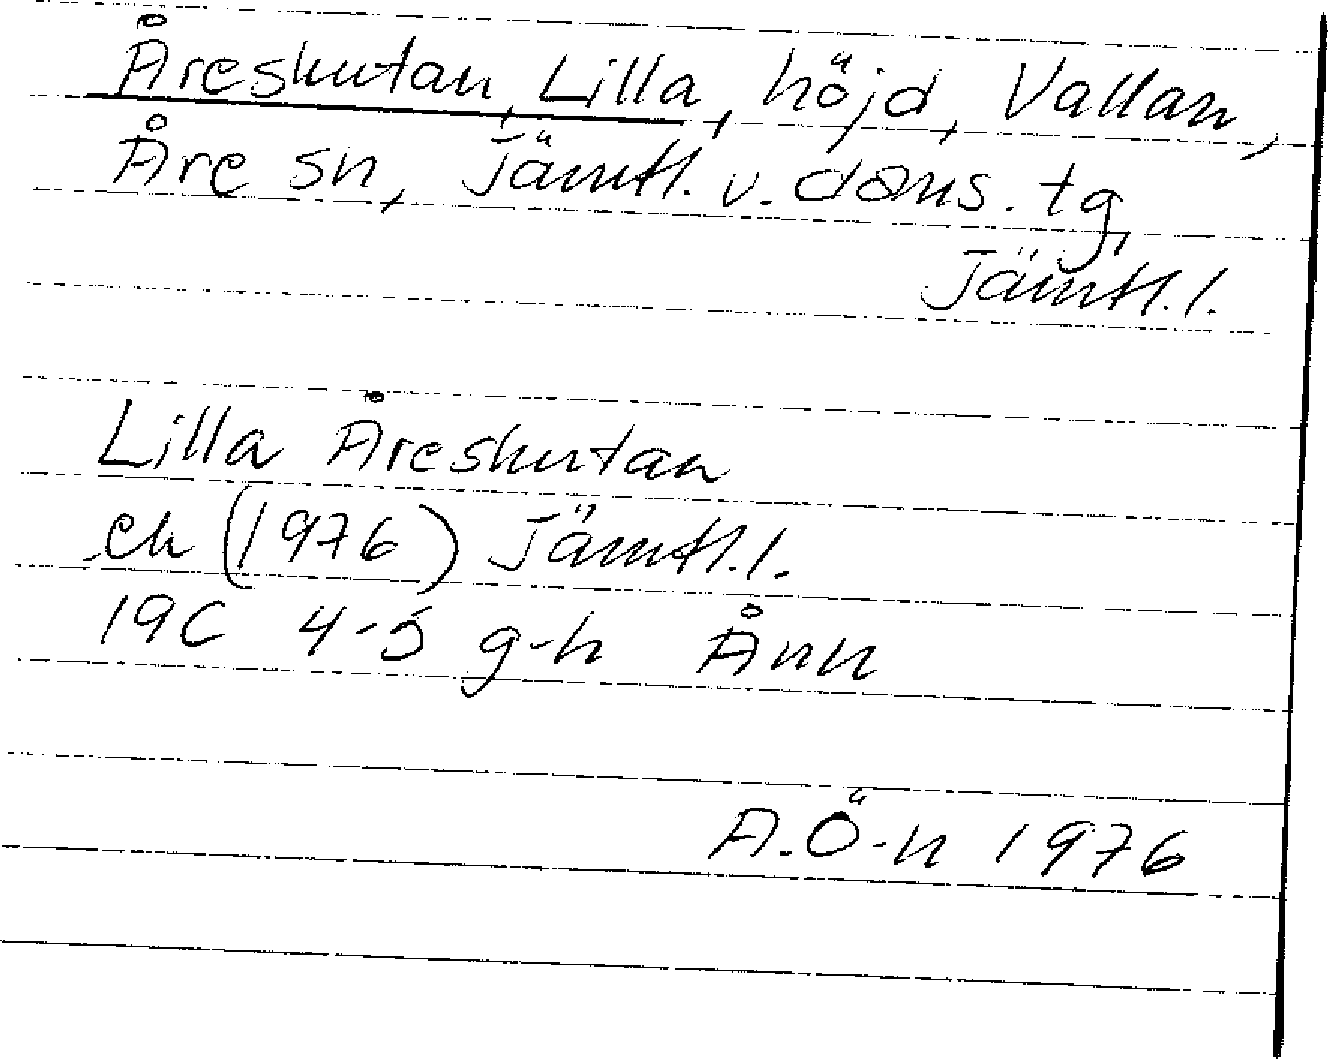 Åreskutan, Lilla, höjd, Vallan,
Åre sn, Jämtl. v. doms. tg,
Jämtl. l.
Lilla Åreskutan
ek (1976) Jämtl. l.
19C 4-5 g-h Ånn
A.Ö-n 1976